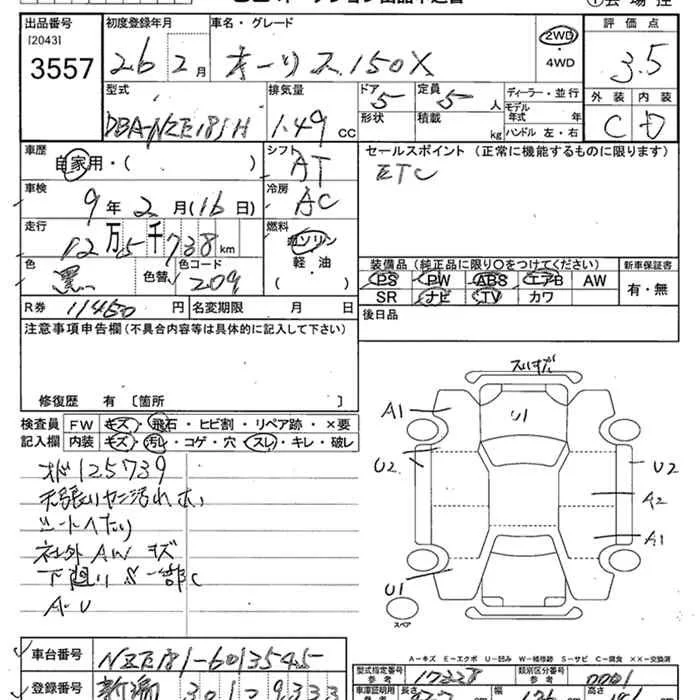 出品番号
[2043]
3557
初度登録年月
26 2月
車名・グレード
オーリス 150X
2WD
・
4WD
評価点
3.5
型式
DBA-NZE181H
排気量
1.49 CC
ドア 5
形状
定員 5 人
積載 kg
ディーラー・並行
モデル年式 年
ハンドル 左・右
外装 内装
C D
車歴
自家用・( )
シフト
AT
セールスポイント (正常に機能するものに限ります)
ETC
車検
9年 2月(16日)
冷房
AC
走行
12万5千738km
燃料
ガソリン
軽・油
( )
色
黒
色替
色コード
209
装備品(純正品に限り○をつけてください)
PS PW ABS エアB AW
SR ナビ TV カワ
新車保証書
有・無
R券 11450円
名変期限 月 日
後日品
注意事項申告欄(不具合内容等は具体的に記入して下さい)
修復歴 有〔箇所 〕
検査員
記入欄
FW キズ・飛石・ヒビ割・リペア跡・×要
内装 キズ・汚レ・コゲ・穴・スレ・キレ・破レ
125739
シートへたり
社外AWキズ
下廻りS 一部C
A・U
A1
U1
U2
U2
A2
A1
U1
スペア
A－キズ E－エクボ U－凹み W－補修跡 S－サビ C－腐食 XX－交換済
車台番号
NZE181-6013545
登録番号
新潟 301 9333
型式指定番号
参考
17328
類別区分番号
参考
0001